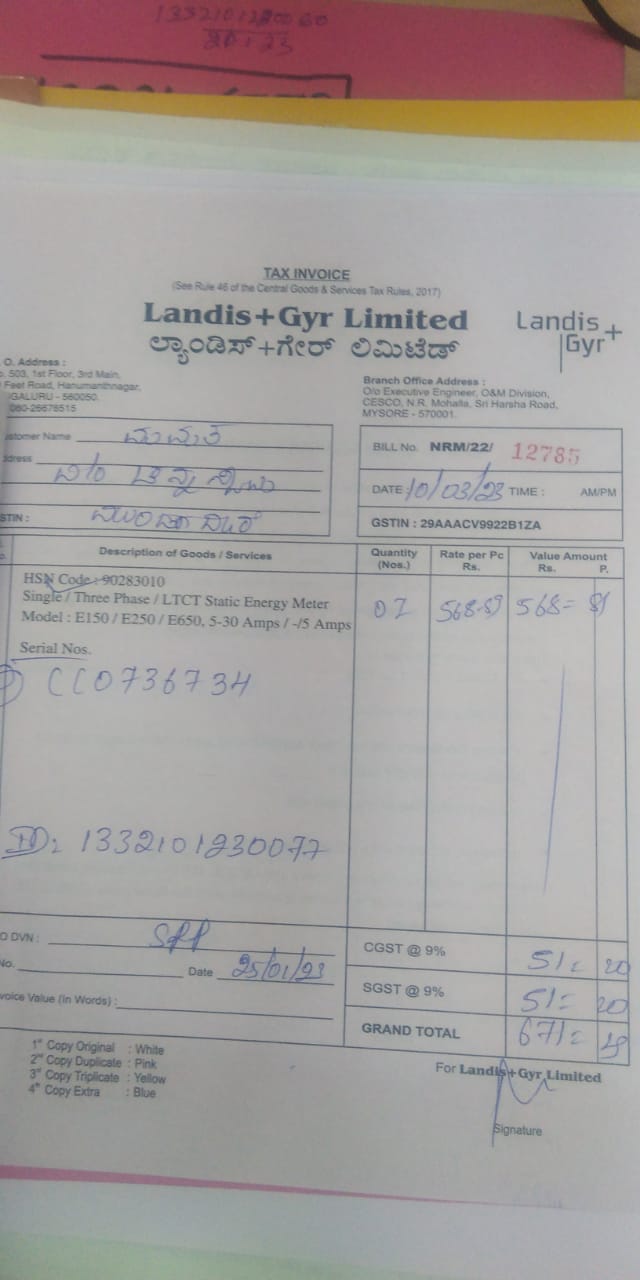 13321012
20
TAX INVOICE
(See Rule 46 of the Central Goods & Services Tax Rules, 2017)
Landis+Gyr Limited
ಲ್ಯಾಂಡಿಸ್+ಗೇರ್ ಲಿಮಿಟೆಡ್
Landis+
Gyr
O. Address :
503, 1st Floor, 3rd Main,
Feet Road, Hanumanthnagar,
GALURU - 560050.
080-26676515
Branch Office Address :
O/o Executive Engineer, O&M Division,
CESCO, N.R. Mohalla, Sri Harsha Road,
MYSORE - 570001.
ustomer Name
dress
STIN :
BILL No. NRM/22/ 12785
DATE 10/03/23 TIME : AM/PM
GSTIN : 29AAACV9922B1ZA
Description of Goods / Services
Quantity (Nos.)
Rate per Pc Rs.
Value Amount Rs. P.
HSN Code : 90283010
Single / Three Phase / LTCT Static Energy Meter
Model : E150 / E250 / E650, 5-30 Amps / -/5 Amps
01 568-81 568= 81
Serial Nos.
CC0736734
ID: 1332101230077
O DVN : SRP
No. Date 25/01/23
voice Value (In Words) :
CGST @ 9% 51= 20
SGST @ 9% 51= 20
GRAND TOTAL 671=
1st Copy Original : White
2nd Copy Duplicate : Pink
3rd Copy Triplicate : Yellow
4th Copy Extra : Blue
For Landis+Gyr Limited
Signature